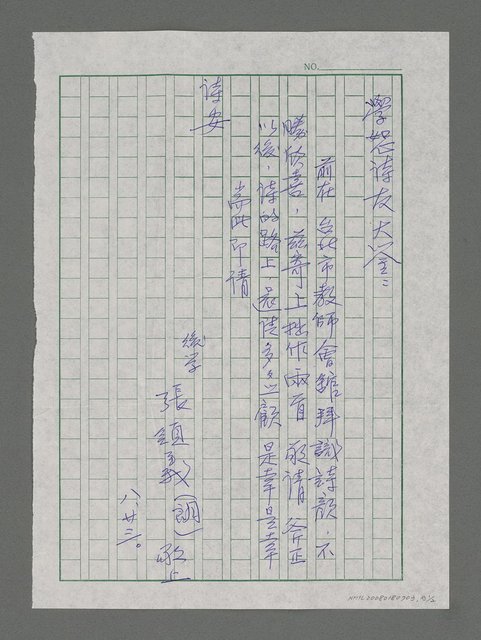 NO.
詩友大鑒：
前在 台北市教師會館拜識詩顏，不
勝欣喜，茲寄上拙作兩首 敬請 斧正
以後，詩的路上，還請多多照顧 是幸是幸
耑此 即请
詩安
後学
張 義（謂）敬上
八、廿三。